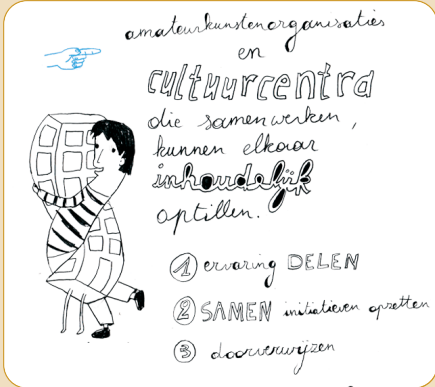 amateurkunstenorganisaties
en
cultuurcentra
die samenwerken,
kunnen elkaar
inhoudelijk
optillen.
1 ervaring DELEN
2 SAMEN initiatieven opzetten
3 doorverwijzen